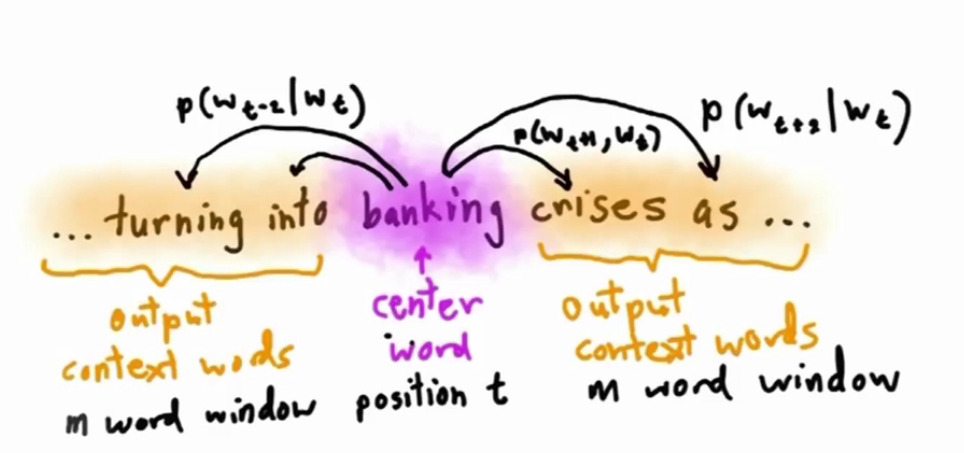 p(wt-2|wt)
p(wt+1,wt)
p(wt+2|wt)
... turning into banking crises as ...
output
context wods
m word window
center
word
position t
output
context words
m word window